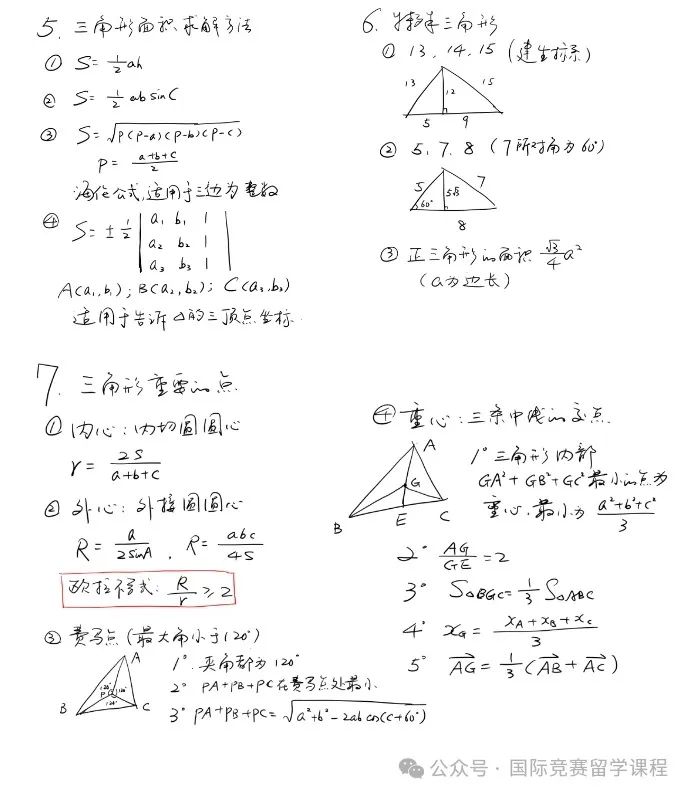 5. 三角形面积求解方法
① S=½ah
② S=½absinC
③ S=√(P(P-a)(P-b)(P-c))
P=(a+b+c)/2
海伦公式,适用于三边为整数
④ S=±½ |a₁ b₁ 1|
|a₂ b₂ 1|
|a₃ b₃ 1|
A(a₁,b₁); B(a₂,b₂); C(a₃,b₃)
适用于告诉△的三顶点坐标.
6. 特殊三角形
① 13, 14, 15 (建坐标系)
13 12 15
5 9
② 5, 7, 8 (7所对角为60°)
5 5√3 7
60°
8
③ 正三角形的面积 √3/4 a²
(a为边长)
7. 三角形重要的点
① 内心:内切圆圆心
r=2S/(a+b+c)
② 外心:外接圆圆心
R=a/(2sinA), R=abc/(4S)
欧拉不等式: R/r≥2
③ 费马点(最大角小于120°)
A
120° P 120°
120°
B C
1° 夹角都为120°
2° PA+PB+PC在费马点处最小
3° PA+PB+PC=√(a²+b²-2abcos(C+60°))
④ 重心:三条中线的交点
A
G
B E C
1° 三角形内部
GA²+GB²+GC²最小的点为
重心,最小为 (a²+b²+c²)/3
2° AG/GE=2
3° S△BGC=⅓S△ABC
4° x_G=(x_A+x_B+x_C)/3
5° A͞G⃗=⅓(AB⃗+AC⃗)
公众号·国际竞赛留学课程